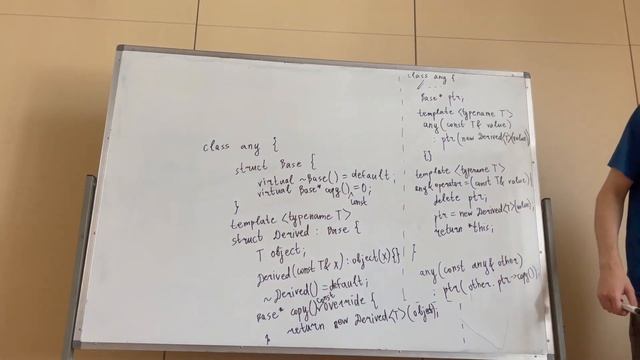 class any {
struct Base {
virtual ~Base() = default;
virtual Base* copy() const = 0;
}
template <typename T>
struct Derived : Base {
T object;
Derived(const T& x) : object(x) {}
~Derived() = default;
Base* copy() const override {
return new Derived<T>(object);
}
class any {
Base* ptr;
template <typename T>
any(const T& value)
: ptr(new Derived<T>(value))
{}
template <typename T>
any& operator=(const T& value) {
delete ptr;
ptr = new Derived<T>(value);
return *this;
}
any(const any& other)
: ptr(other.ptr->copy())